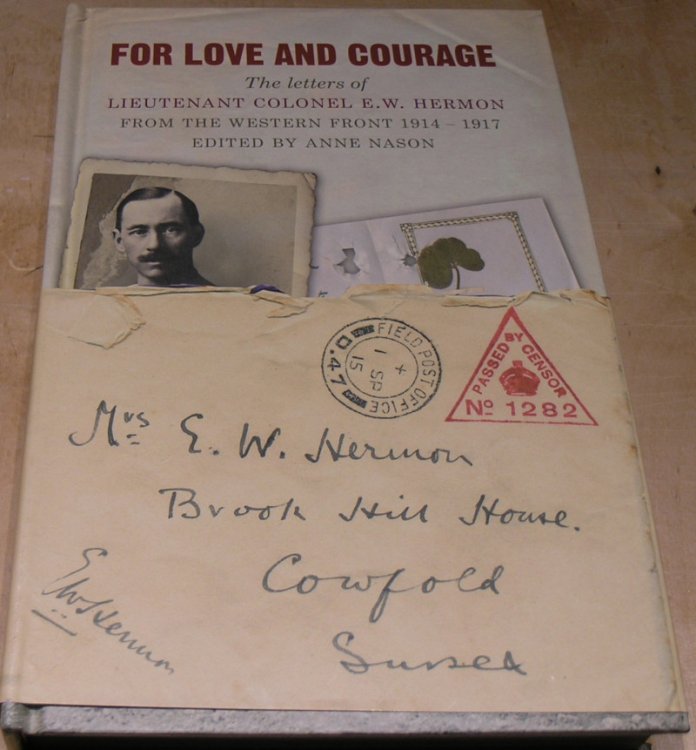 FOR LOVE AND COURAGE
The letters of
LIEUTENANT COLONEL E.W. HERMON
FROM THE WESTERN FRONT 1914 – 1917
EDITED BY ANNE NASON
FIELD POST OFFICE
+
1 SP
15
D.47
PASSED BY CENSOR
No 1282
Mrs E. W. Hermon
Brook Hill House.
Cowfold
Sussex
EWHermon